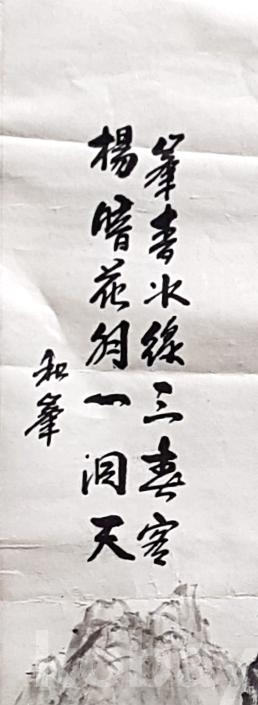 峯青水綠三春
楊暗花明一洞天
和峯
kobay